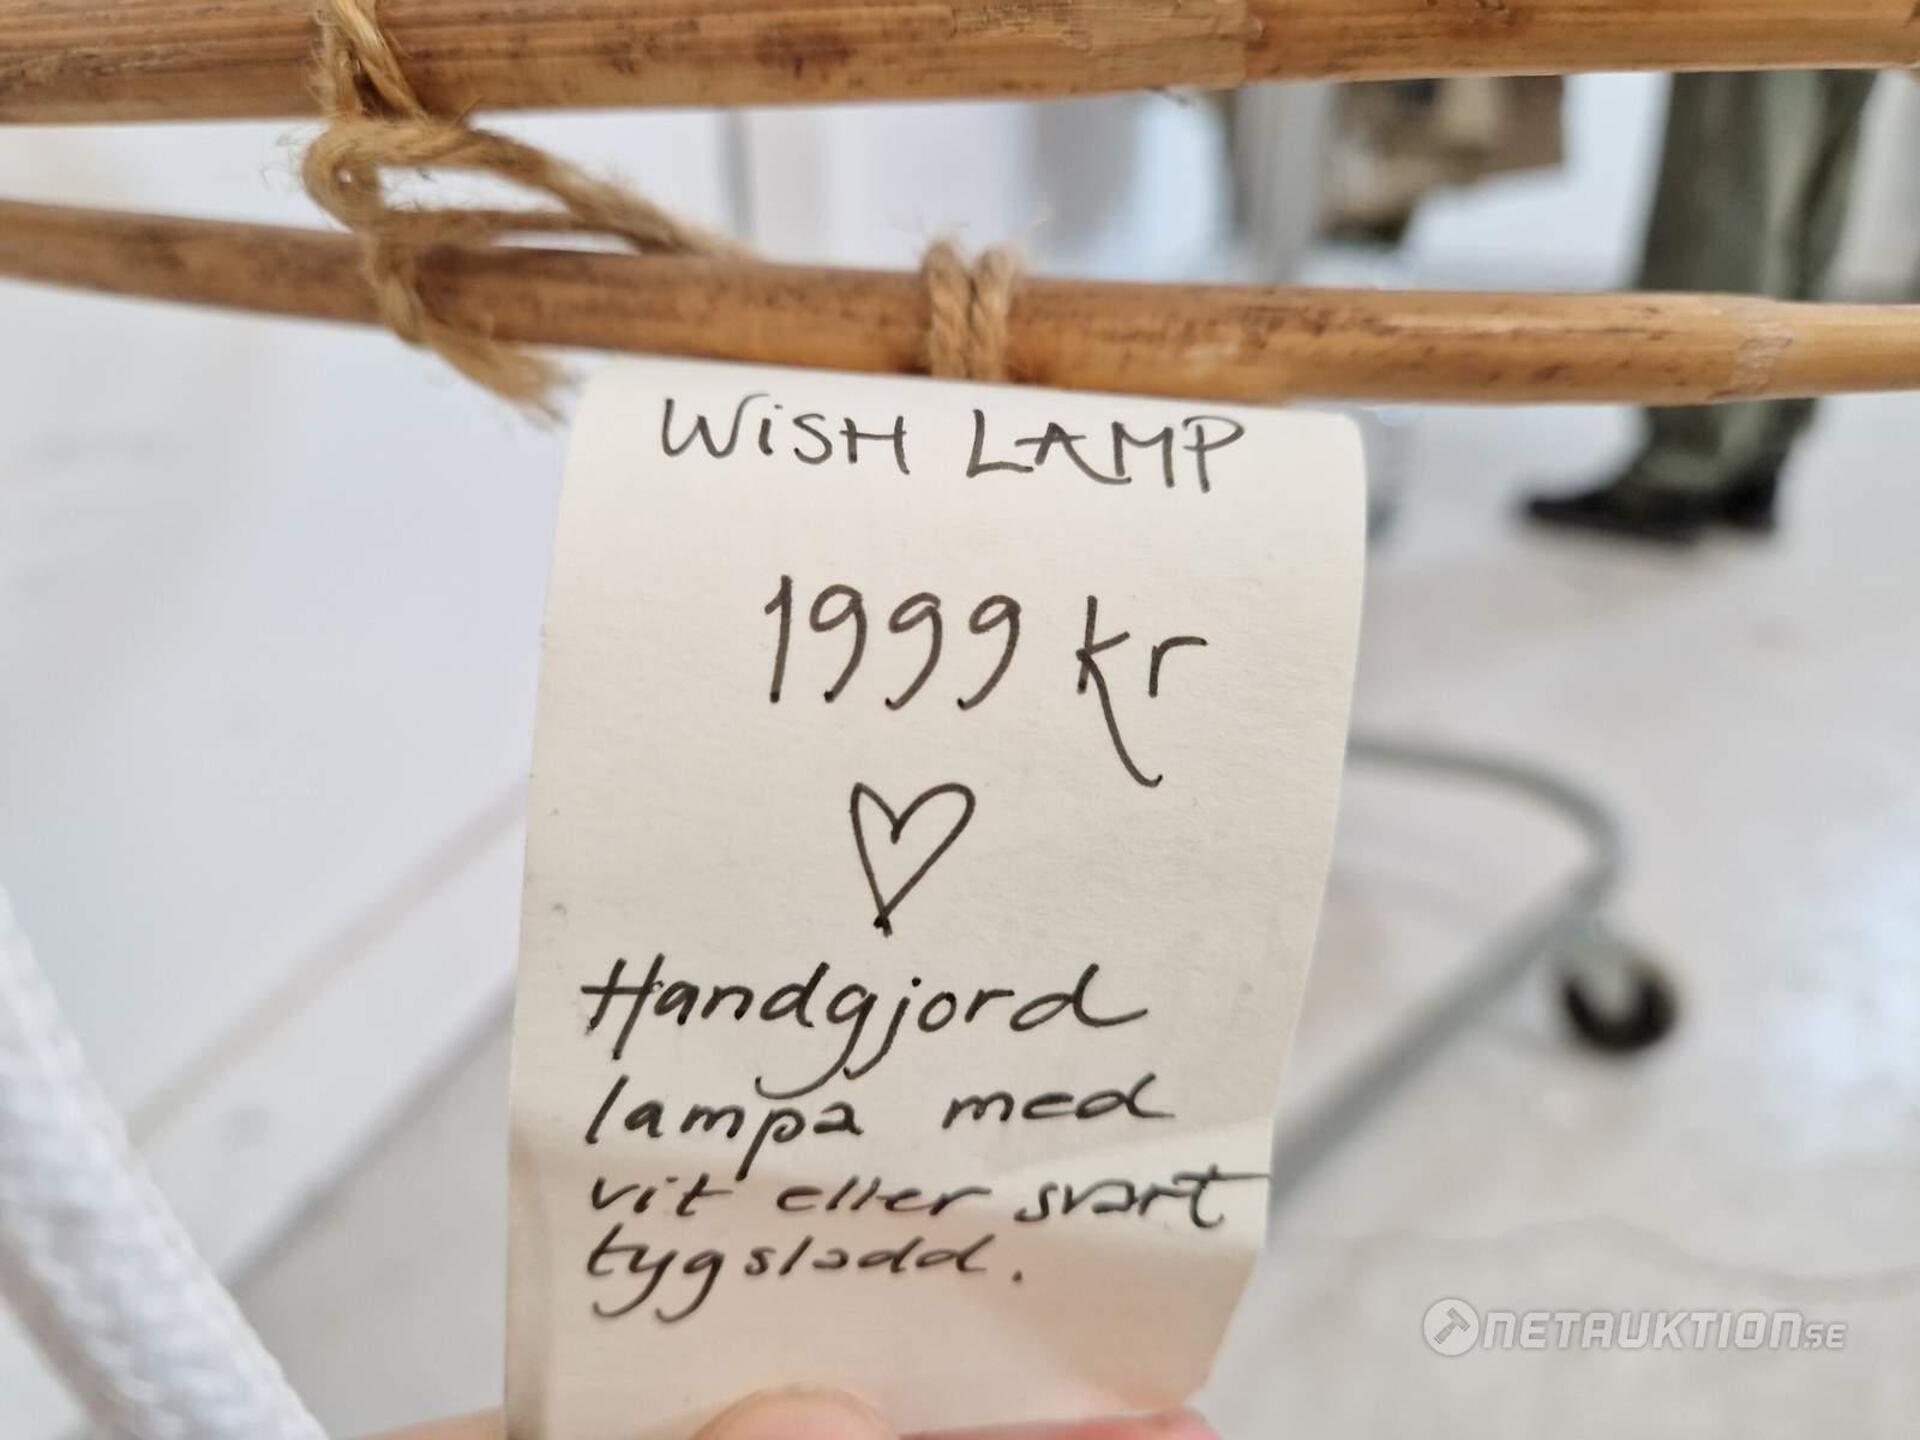 WiSH LAMP
1999 kr
Handgjord
lampa med
vit eller svart
tygsladd.
NETAUKTION.SE